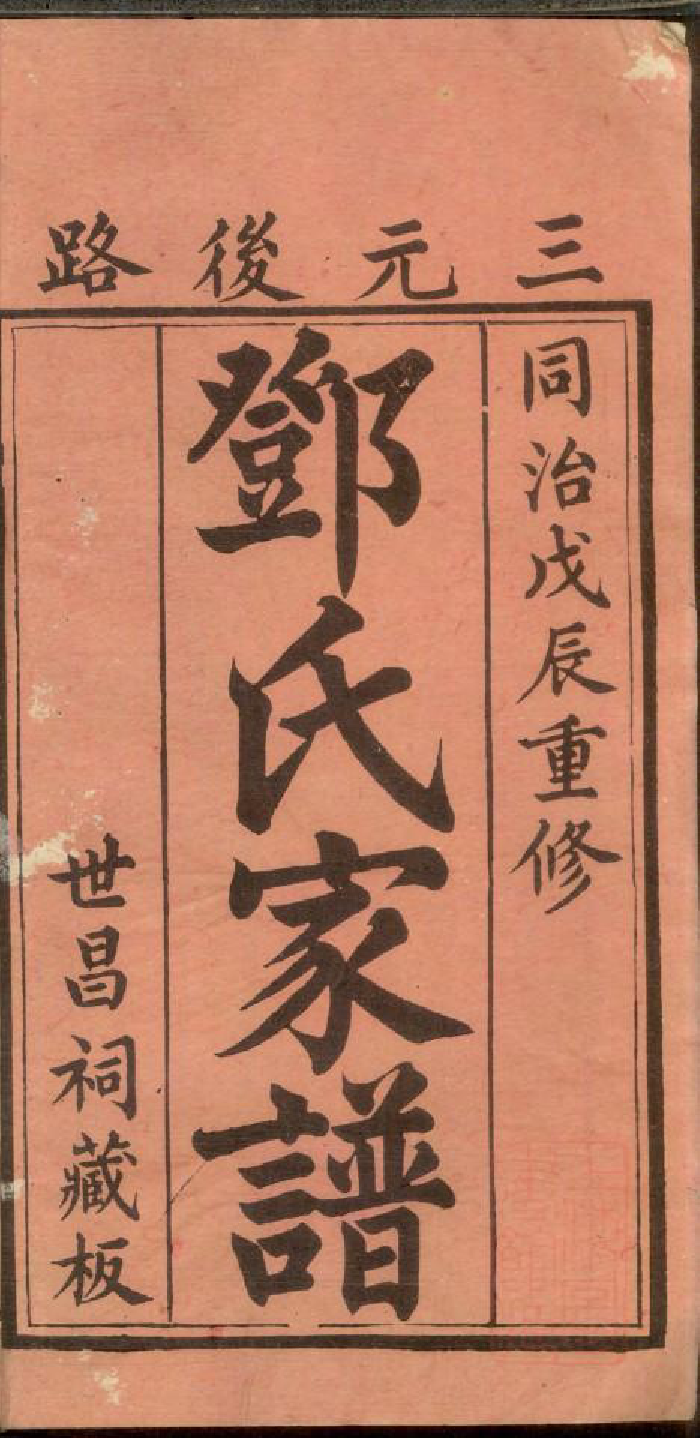 三元後路
同治戊辰重修
鄧氏家譜
世昌祠藏板